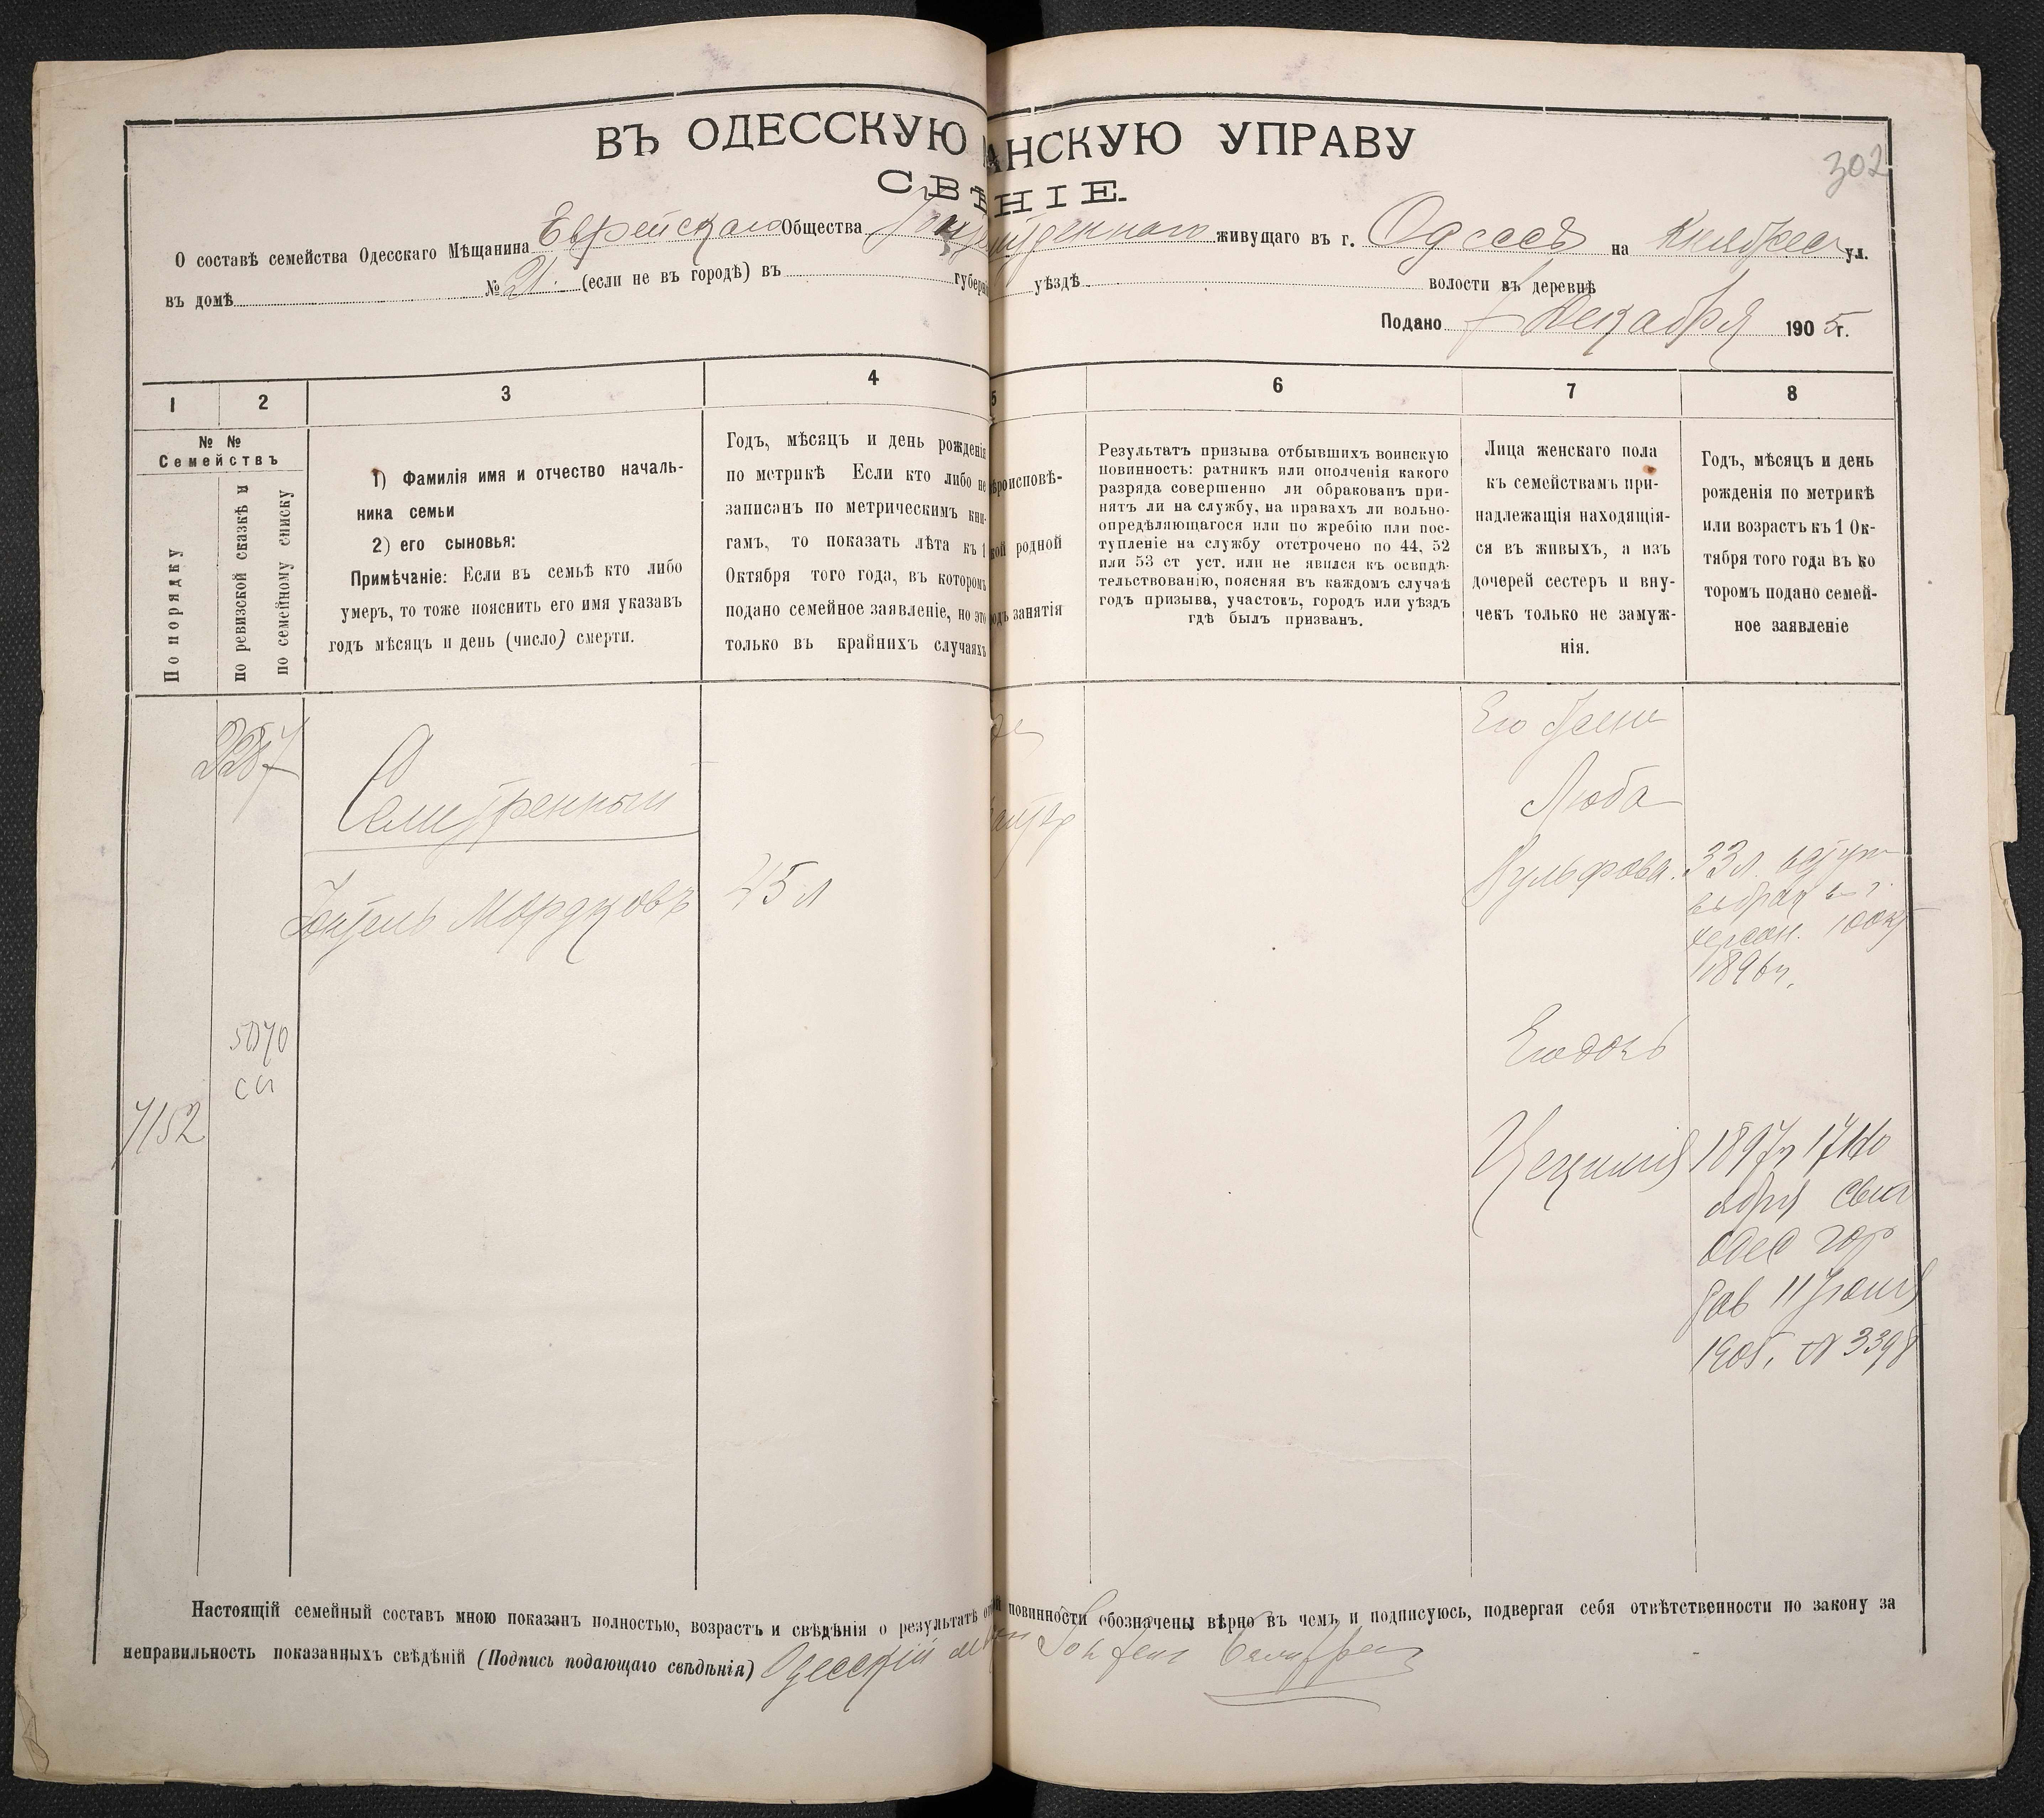 302
ВЪ ОДЕССКУЮ АНСКУЮ УПРАВУ
СВѢ НІЕ.
О составѣ семейства Одесскаго Мѣщанина Еврейскаго Общества живущаго въ г. Одессѣ на ул.
въ домѣ № 21. (если не въ городѣ) въ губер уѣздѣ волости въ деревнѣ
Подано 7 Декабря 1905 г.
1 2 3 4 5 6 7 8
№ №
Семействъ
По порядку
по ревизской сказкѣ и
по семейному списку
1) Фамилія имя и отчество началь-
ника семьи
2) его сыновья:
Примѣчаніе: Если въ семьѣ кто либо
умеръ, то тоже пояснить его имя указавъ
годъ мѣсяцъ и день (число) смерти.
Годъ, мѣсяцъ и день рожденія
по метрикѣ Если кто либо не
записанъ по метрическимъ кни-
гамъ, то показать лѣта къ 1
Октября того года, въ которомъ
подано семейное заявленіе, но это
только въ крайнихъ случаяхъ
ѣроисповѣ-
кой родной
одъ занятія
Результатъ призыва отбывшихъ воинскую
повинность: ратникъ или ополченія какого
разряда совершенно ли обракованъ при-
нятъ ли на службу, на правахъ ли вольно-
опредѣляющагося или по жребію или пос-
тупленіе на службу отстрочено по 44, 52
или 53 ст уст. или не явился къ освидѣ-
тельствованію, поясняя въ каждомъ случаѣ
годъ призыва, участокъ, городъ или уѣздъ
гдѣ былъ призванъ.
Лица женскаго пола
къ семействамъ при-
надлежащія находящія-
ся въ живыхъ, а изъ
дочерей сестеръ и вну-
чекъ только не замуж-
нія.
Годъ, мѣсяцъ и день
рожденія по метрикѣ
или возрастъ къ 1 Ок-
тября того года въ ко
торомъ подано семей-
ное заявленіе
2287
Селитренный
Мордковъ 45 л
Его жена
Люба
Вульфова. 33 л. вступ
въ бракъ въ г.
Херсон. 10 окт
1896 г.
5070
сп
7152
Его дочь
Цецилія 1897 г 17 Но
ября Свид
Одес гор
рав 11 Іюня
1905. № 3398
Настоящій семейный составъ мною показанъ полностью, возрастъ и свѣдѣнія о результатѣ повинности обозначены вѣрно въ чемъ и подписуюсь, подвергая себя отвѣтственности по закону за
неправильность показанныхъ свѣдѣній (Подпись подающаго свѣдѣнія) Одесскій